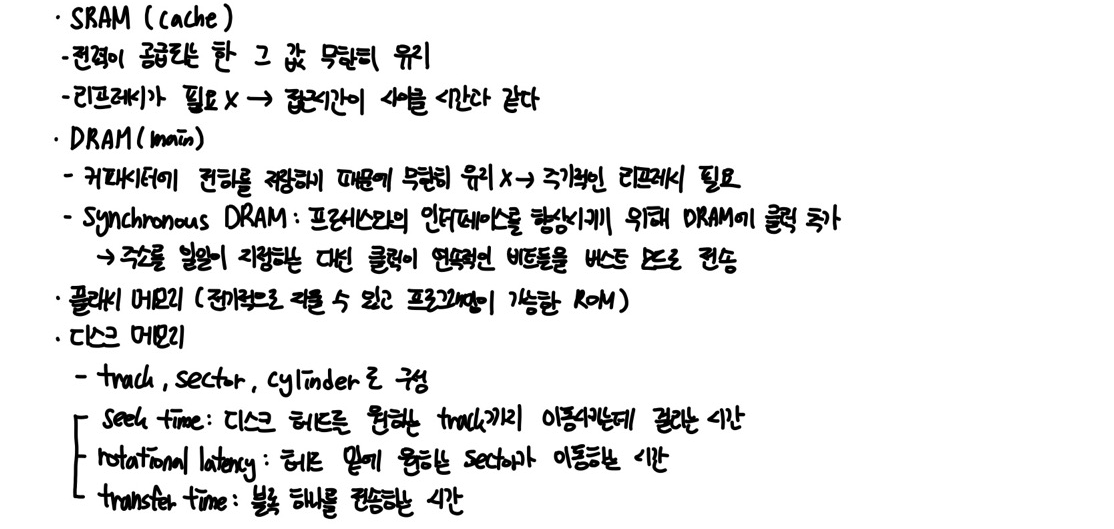 · SRAM (cache)
- 전력이 공급되는 한 그 값 무한히 유지
- 리프레시가 필요 X → 접근시간이 사이클 시간과 같다
· DRAM (main)
- 커패시터에 전하를 저장하기 때문에 무한히 유지 X → 주기적인 리프레시 필요
- Synchronous DRAM : 프로세스와의 인터페이스를 향상시키기 위해 DRAM에 클럭 추가
→ 주소를 일일이 지정하는 대신 클럭이 연속적인 비트들을 버스트 모드로 전송
· 플래시 메모리 (전기적으로 지울 수 있고 프로그래밍이 가능한 ROM)
· 디스크 메모리
- track, sector, cylinder로 구성
seek time : 디스크 헤드를 원하는 track까지 이동시키는데 걸리는 시간
rotational latency : 헤드 밑에 원하는 sector가 이동하는 시간
transfer time : 블록 하나를 전송하는 시간